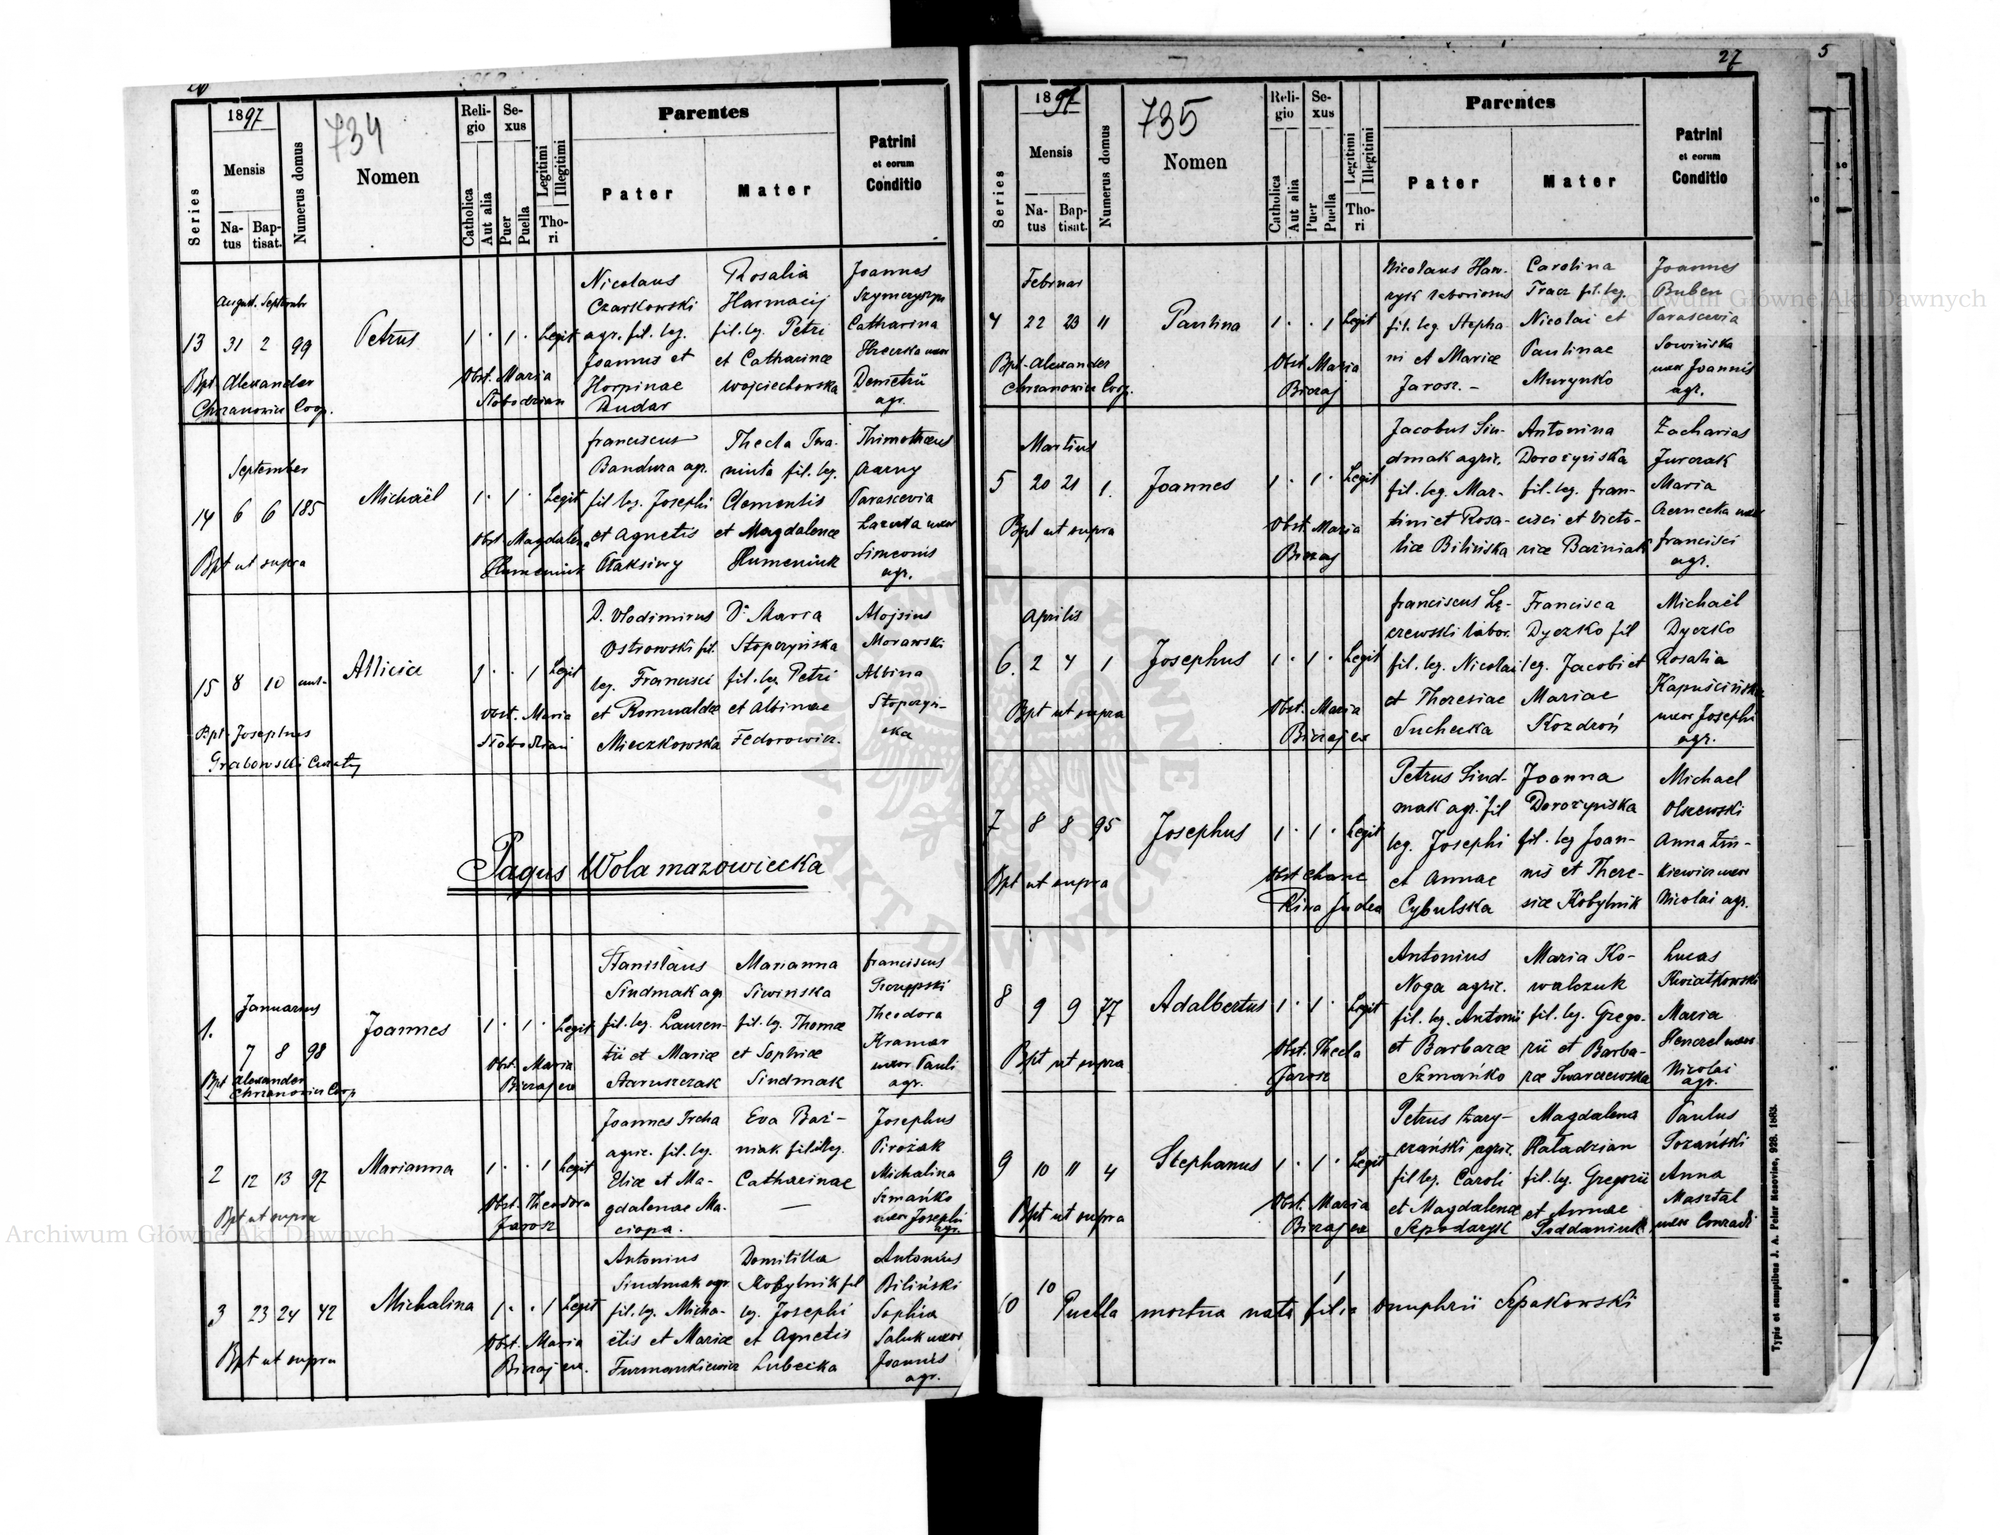 26
1897
734
Series
Mensis
Natus
Baptisat.
Numerus domus
Nomen
Religio
Catholica
Aut alia
Sexus
Puer
Puella
Legitimi
Illegitimi
Thori
Parentes
Pater
Mater
Patrini
et eorum
Conditio
August. Septembr
13 31 2 99
Petrus
1 · 1 · Legit
Bpt. Alexander
Chrzanowicz Coop.
Obst. Maria
Słobodzian
Nicolaus
Czarkowski
agr. fil. leg.
Joannis et
Horpinae
Dudar
Rosalia
Harmacij
fil. leg. Petri
et Catharinae
Wojciechowska
Joannes
Catharina
Hrecka uxor
Demetrii
agr.
September
14 6 6 185
Michaël
1 · 1 · Legit
Bpt ut supra
Obst Magdalena
Humeniuk
Franciscus
Bandura agr.
fil leg. Josephi
et Agnetis
Ołaksiwy
Thecla Iwa-
niuta fil. leg.
Clementis
et Magdalenae
Humeniuk
Thimothaeus
Czarny
Parascevia
Lazuta uxor
Simeonis
agr.
15 8 10
Allicia
1 · · 1 Legit
Bpt. Josephus
Grabowski
Obst. Maria
Słobodzian
D. Vladimirus
Ostrowski fil.
leg. Francisci
et Romualdae
Mieczkowska
D. Maria
Stopczyńska
fil. leg Petri
et Albinae
Fedorowicz.
Alojsius
Morawski
Albina
Stopczyń-
ska
Pagus Wola mazowiecka
Januarius
1. 7 8 98
Joannes
1 · 1 · Legit
Bpt Alexander
Chrzanowicz Coop
Obst. Maria
Bizajew
Stanislaus
Sindmak agr
fil. leg. Lauren-
tii et Mariae
Staruszczak
Marianna
Siwinska
fil. leg. Thomae
et Sophiae
Sindmak
Franciscus
Theodora
Kramar
uxor Pauli
agr.
2 12 13 97
Marianna
1 · · 1 Legit
Bpt ut supra
Obst. Theodora
Jarosz
Joannes Ircha
agric. fil. leg.
Eliae et Ma-
gdalenae Ma-
ciopa.
Eva Baź-
niak filia leg.
Catharinae
—
Josephus
Pirożak
Michalina
Szmańko
uxor Josephi
agr.
3 23 24 42
Michalina
1 · · 1 Legit
Bpt ut supra
Obst. Maria
Bizajew.
Antonius
Sindmak agr
fil. leg. Micha-
ëlis et Mariae
Furmankiewicz
Domitilla
Kobylnik fil
leg. Josephi
et Agnetis
Lubecka
Antonius
Biliński
Sophia
Saluk uxor
Joannis
agr.
27
1897
735
Series
Mensis
Natus
Baptisat.
Numerus domus
Nomen
Religio
Catholica
Aut alia
Sexus
Puer
Puella
Legitimi
Illegitimi
Thori
Parentes
Pater
Mater
Patrini
et eorum
Conditio
Februar
4 22 23 11
Paulina
1 · · 1 Legit
Bpt. Alexander
Chrzanowicz Coop.
Obst Maria
Bizaj
Nicolaus Haw-
ryk laboriosus
fil. leg. Stepha-
ni et Mariae
Jarosz. -
Carolina
Tracz fil. leg.
Nicolai et
Paulinae
Murynko
Joannes
Buben
Parascevia
Sowińska
uxor Joannis
agr.
Martius
5 20 21 1.
Joannes
1 · 1 · Legit
Bpt ut supra
Obst Maria
Bizaj
Jacobus Sin-
dmak agric.
fil. leg. Mar-
tini et Rosa-
liae Bilińska
Antonina
Dorożyńska
fil. leg. Fran-
cisci et Victo-
riae Baźniak
Zacharias
Jurczak
Maria
Czernecka uxor
Francisci
agr.
Aprilis
6. 2 4 1
Josephus
1 · 1 · Legit
Bpt ut supra
Obst. Maria
Bizajew
Franciscus Łę-
czewski labor.
fil. leg. Nicolai
et Theresiae
Suchecka
Francisca
Dyczko fil
leg. Jacobi et
Mariae
Kozdroń
Michaël
Dyczko
Rosalia
Kapuścińska
uxor Josephi
agr.
7 8 8 95
Josephus
1 · 1 · Legit
Bpt ut supra
Obst Chane
Rina Judea
Petrus Sind-
mak agr. fil
leg. Josephi
et Annae
Cybulska
Joanna
Dorożyńska
fil. leg Joan-
nis et There-
siae Kobylnik
Michael
Olszewski
Anna Zin-
kiewicz uxor
Nicolai agr.
8 9 9 77
Adalbertus
1 · 1 · Legit
Bpt ut supra
Obst. Thecla
Jarosz
Antonius
Noga agric.
fil. leg. Antonii
et Barbarae
Szmańko
Maria Ko-
walczuk
fil. leg. Grego-
rii et Barba-
rae Swarczewska
Lucas
Kwiatkowski
Maria
Henczel uxor
Nicolai
agr.
9 10 11 4
Stephanus
1 · 1 · Legit
Bpt ut supra
Obst. Maria
Bizajew
Petrus Zary-
czański agric.
fil leg. Caroli
et Magdalenae
Szpodaryk
Magdalena
Kaladzian
fil. leg. Gregorii
et Annae
Poddaniuk
Paulus
Pozański
Anna
Masztal
uxor Conradi
10 10 Puella mortua nata filia Onuphrii Szpakowski
Typis et sumptibus J. A. Pelar Resoviae, 928. 1883.
5
Archiwum Główne Akt Dawnych
Archiwum Główne Akt Dawnych